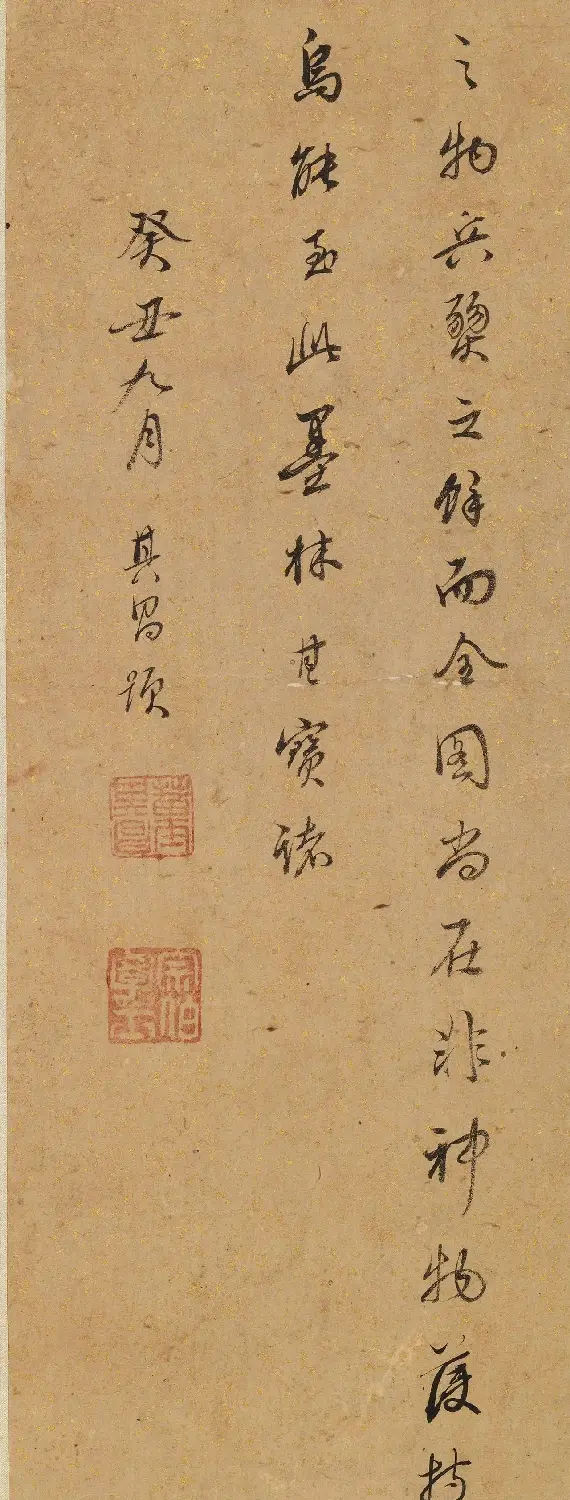 之物兵燹之餘而全圖尚在非神物護持
烏能至此墨林其寶諸
癸丑九月 其昌題
宗伯學士